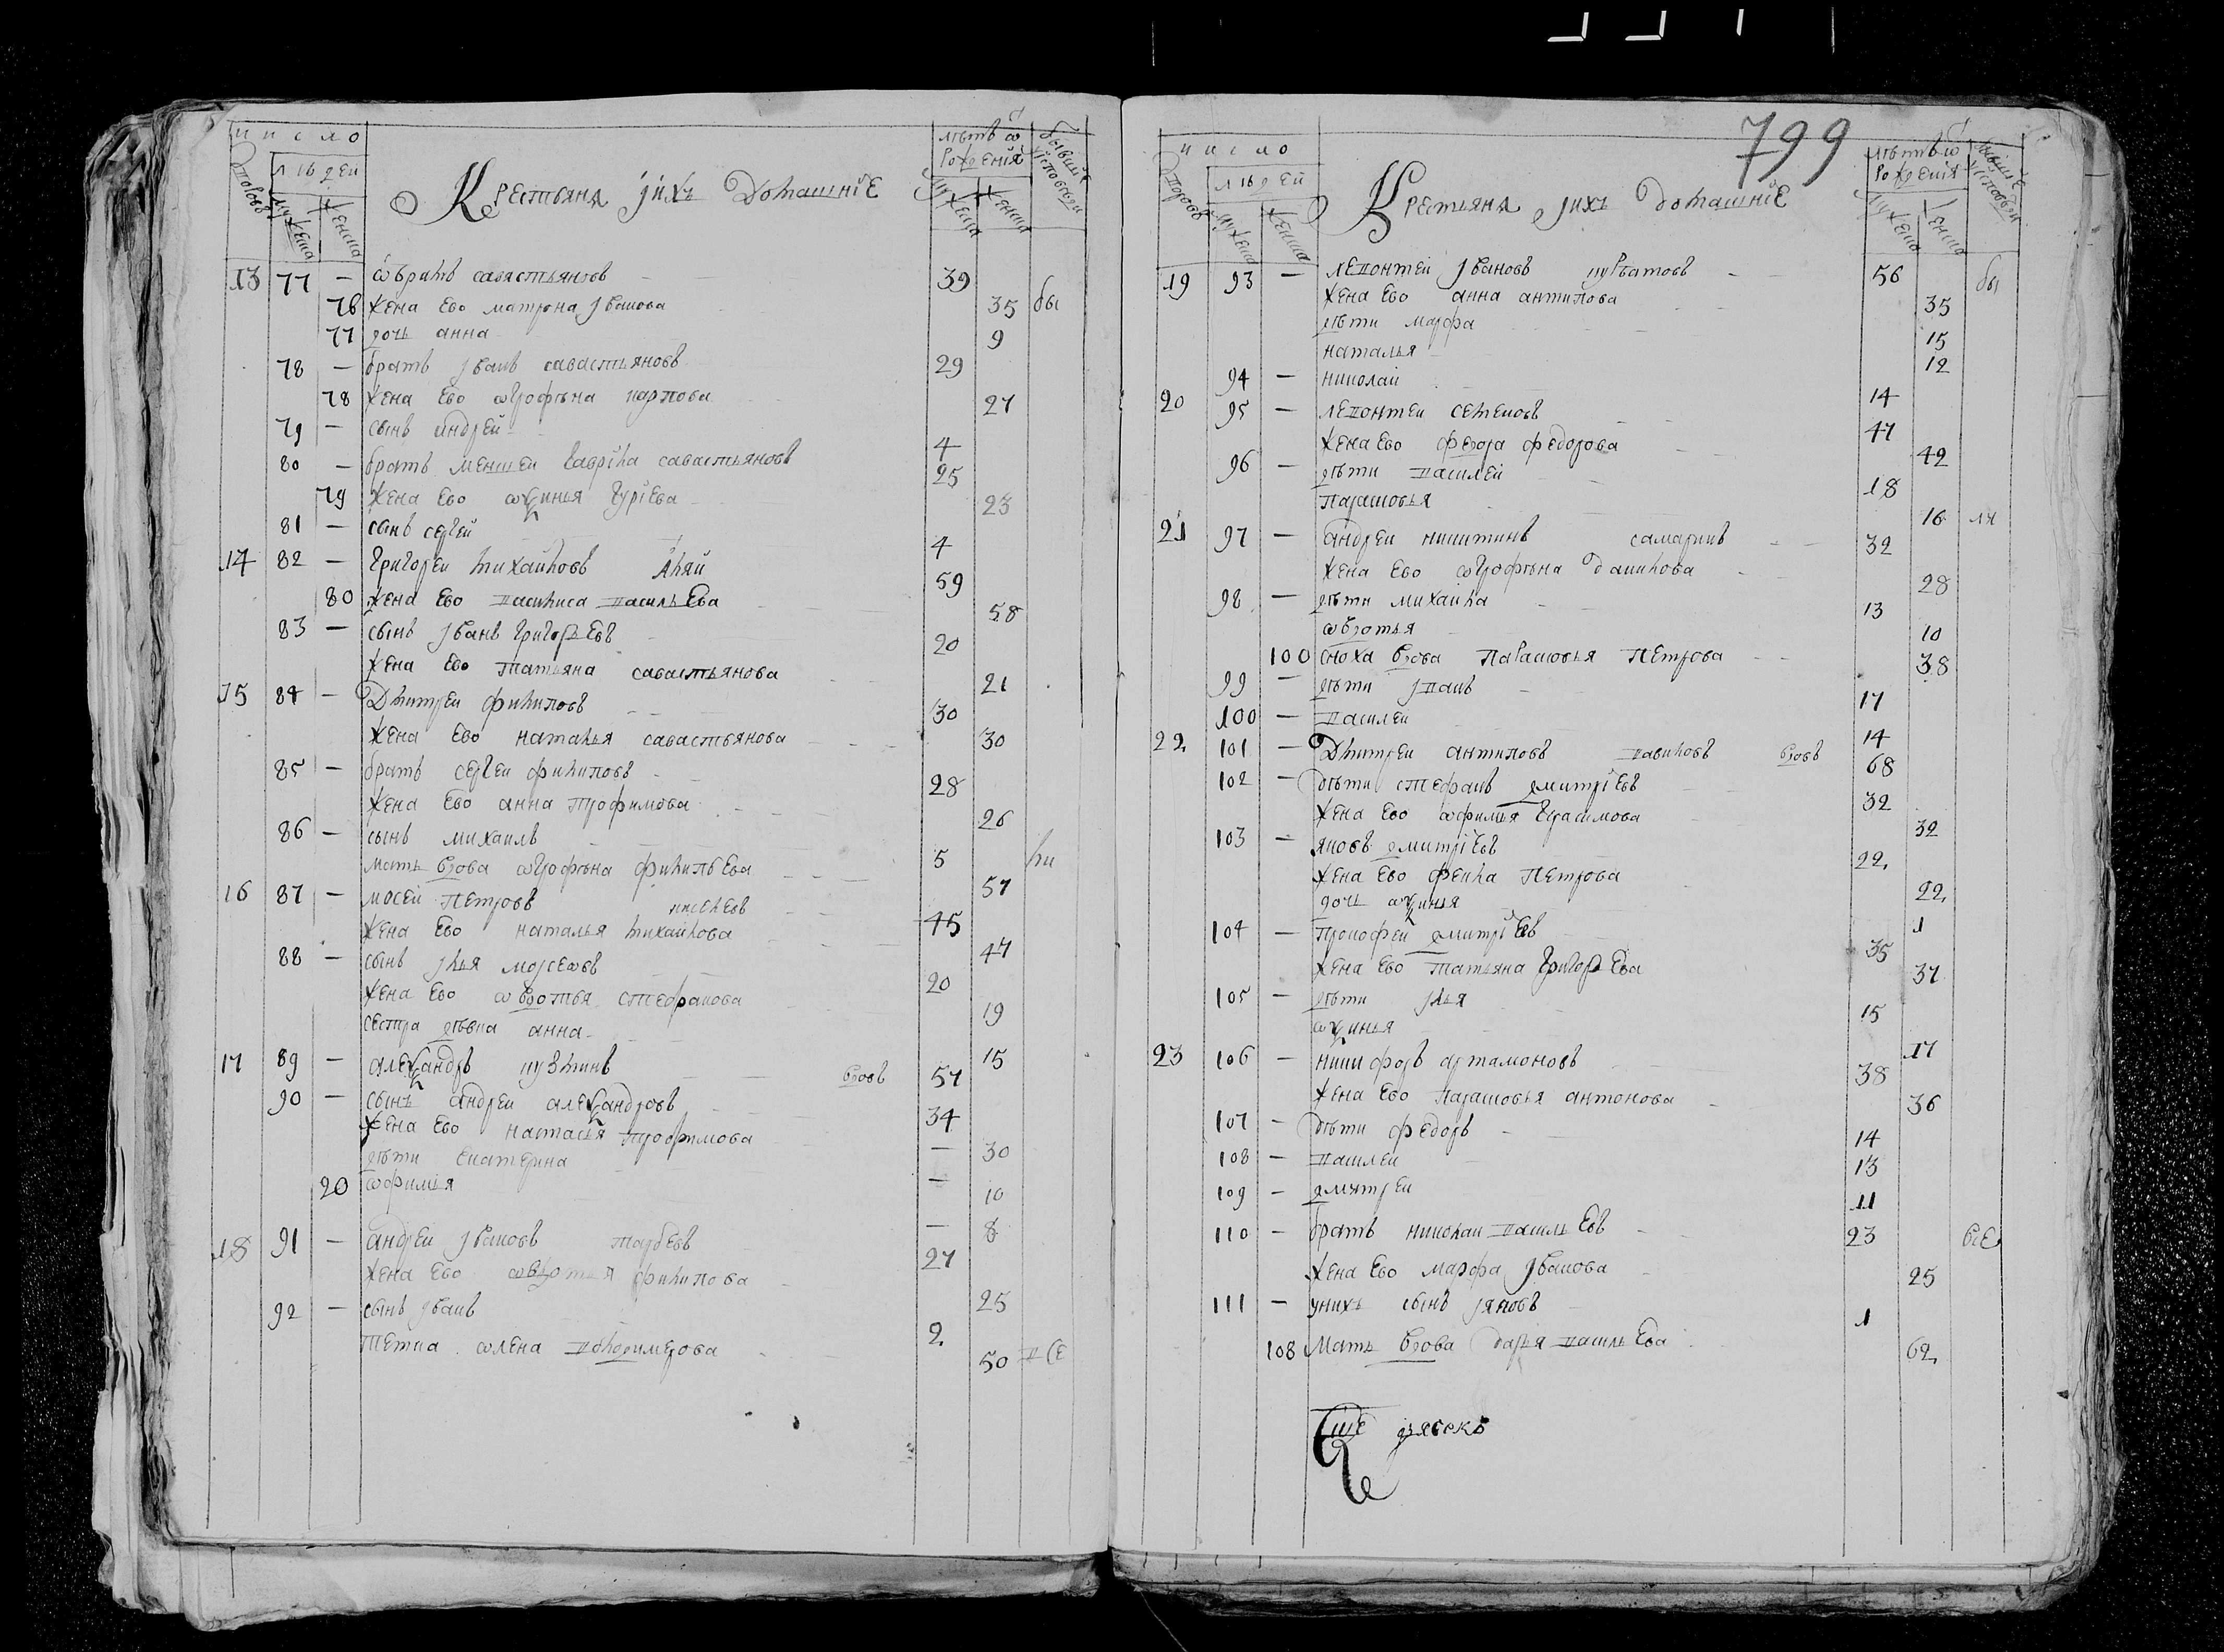 число
людей
дворовъ
мужеска
женска
Крестьяня ихъ домашнїе
лѣтъ ѿ рожденїя
мужеска
женска
бывшїя у исповѣди
13 77 — ѡврамъ савастьяновъ 39
76 жена ево матрона иванова 35 бы
77 дочь анна 9
78 — братъ иванъ савастьяновъ 29
78 жена ево ѡгрофѣна карпова 27
79 — сынъ андрей 4
80 — братъ меншеи гаврїла савастьяновъ 25
79 жена ево ѡѯинья гурїева 23
81 — сынъ сергей 4
14 82 — григореи михаиловъ 59
80 жена ево василиса васильева 58
83 — сынъ иванъ григорьевъ 20
жена ево татьяна савастьянова 21
15 84 — Дмитреи филиповъ 30
жена ево наталья савастьянова 30
85 — братъ сергеи филиповъ 28
жена ево анна трофимова 26
86 — сынъ михаилъ 5
мать вдова ѡгрофѣна филипьева 57
16 87 — мосеи петровъ 45
жена ево наталья михаилова 47
88 — сынъ илья мосеѡвъ 20
жена ево ѡвдотья стефанова 19
сестра девка анна 15
17 89 — алеѯандръ кузминъ вдовъ 57
90 — сынъ андреи алеѯандровъ 34
жена ево настасья трофимова — 30
дѣти екатерина — 10
20 ѡфимья — 8
18 91 — андреи ивановъ 27
жена ево ѡвдотья филипова 25
92 — сынъ иванъ 2
тетка ѡлена володимерова 50 все
799
число
людей
дворовъ
мужеска
женска
Крестьяня ихъ домашнїе
лѣтъ ѿ рожденїя
мужеска
женска
бывшїе у исповѣди
19 93 — левонтеи ивановъ 56 бы
жена ево анна антипова 35
дѣти марфа 15
наталья 12
94 — николаи 14
20 95 — левонтеи семеновъ 47
жена ево федора федорова 42
96 — дѣти василеи 18
парасковья 16 ли
21 97 — андреи никитинъ самаринъ 32
жена ево ѡгрофѣна данилова 28
98 — дѣти михаила 13
ѡвдотья 10
100 сноха вдова парасковья петрова 38
99 — дѣти иванъ 17
100 — василеи 14
22 101 — Дмитреи антиповъ вавиловъ вдовъ 68
102 — дѣти стефанъ дмитрїевъ 32
жена ево ѡфимья герасимова 32
103 — яковъ дмитрїевъ 22
жена ево фекла петрова 22
дочь ѡѯинья 1
104 — прокофей дмитрїевъ 35
жена ево татьяна григорьева 37
105 — дѣти илья 15
ѡѯинья 17
23 106 — никифоръ артамоновъ 38
жена ево парасковья антонова 36
107 — дѣти федоръ 14
108 — василеи 13
109 — дмитреи 11
110 — братъ николаи васильевъ 23 все
жена ево марфа иванова 25
111 — у нихъ сынъ яковъ 1
108 мать вдова дарья васильева 62